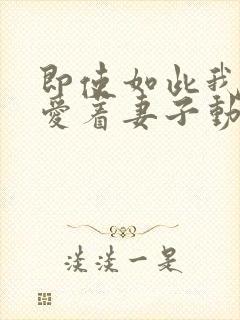 即使如此我
愛着妻子動
淡淡一是